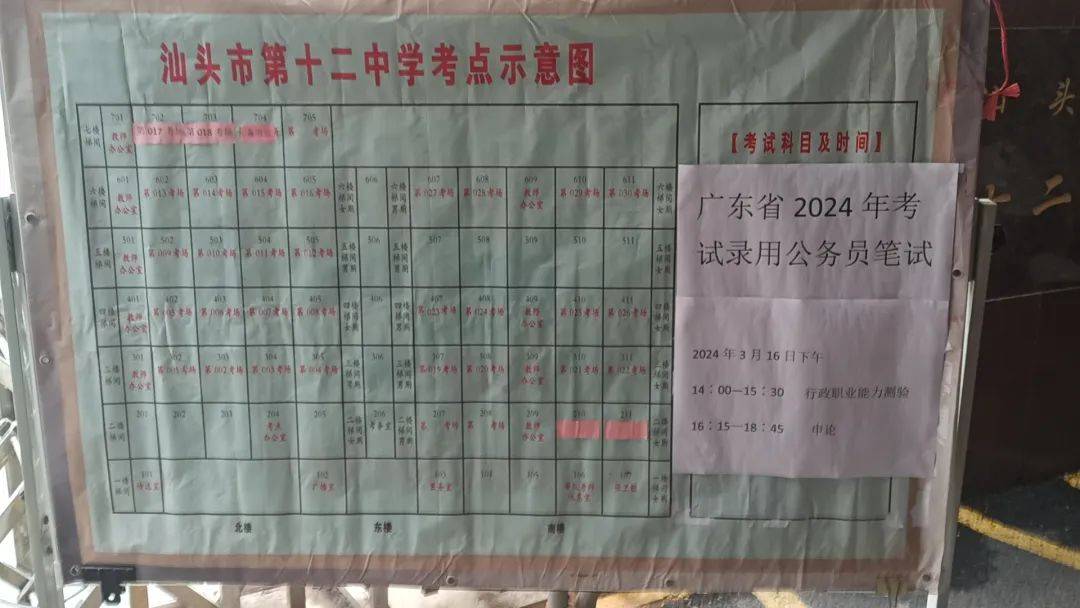 汕头市第十二中学考点示意图
701 702 703 704 705
七楼梯间 教师办公室 第017考场 第018考场 第 考场
601 602 603 604 605 606 607 608 609 610 611
六楼梯间 教师办公室 第013考场 第014考场 第015考场 第016考场 六楼梯间女厕 六楼梯间男厕 第027考场 第028考场 教师办公室 第029考场 第030考场 六楼梯间女厕
501 502 503 504 505 506 507 508 509 510 511
五楼梯间 教师办公室 第009考场 第010考场 第011考场 第012考场 五楼梯间男厕 五楼梯间男厕 五楼梯间男厕
401 402 403 404 405 406 407 408 409 410 411
四楼梯间 教师办公室 第005考场 第006考场 第007考场 第008考场 四楼梯间女厕 四楼梯间男厕 第023考场 第024考场 教师办公室 第025考场 第026考场 四楼梯间女厕
301 302 303 304 305 306 307 308 309 310 311
三楼梯间 教师办公室 第001考场 第002考场 第003考场 第004考场 三楼梯间男厕 三楼梯间男厕 第019考场 第020考场 教师办公室 第021考场 第022考场 三楼梯间女厕
201 202 203 204 205 206 207 208 209 210 211
二楼梯间 考点办公室 二楼梯间女厕 考务室 二楼梯间男厕 第 考场 第 考场 教师办公室
101 102 103 104 105 106 107
一楼梯间 广播室 医务室
北楼 东楼 南楼
【考试科目及时间】
广东省 2024 年考
试录用公务员笔试
2024 年 3 月 16 日下午
14：00—15：30 行政职业能力测验
16：15—18：45 申论
头
二